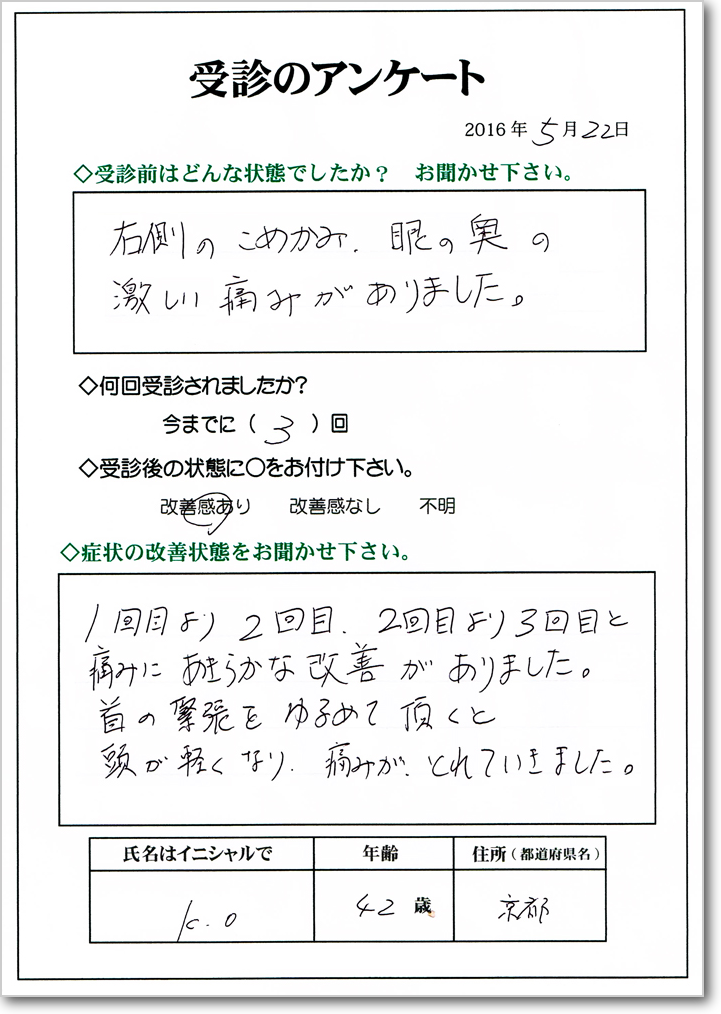 受診のアンケート
2016年5月22日
◇受診前はどんな状態でしたか？　お聞かせ下さい。
右側のこめかみ、眼の奥の
激しい痛みがありました。
◇何回受診されましたか?
今までに（ 3 ）回
◇受診後の状態に○をお付け下さい。
改善感あり　改善感なし　不明
◇症状の改善状態をお聞かせ下さい。
1回目より2回目、2回目より3回目と
痛みにあきらかな改善がありました。
首の緊張をゆるめて頂くと
頭が軽くなり、痛みが、とれていきました。
氏名はイニシャルで　年齢　住所（都道府県名）
K.O　42歳　京都